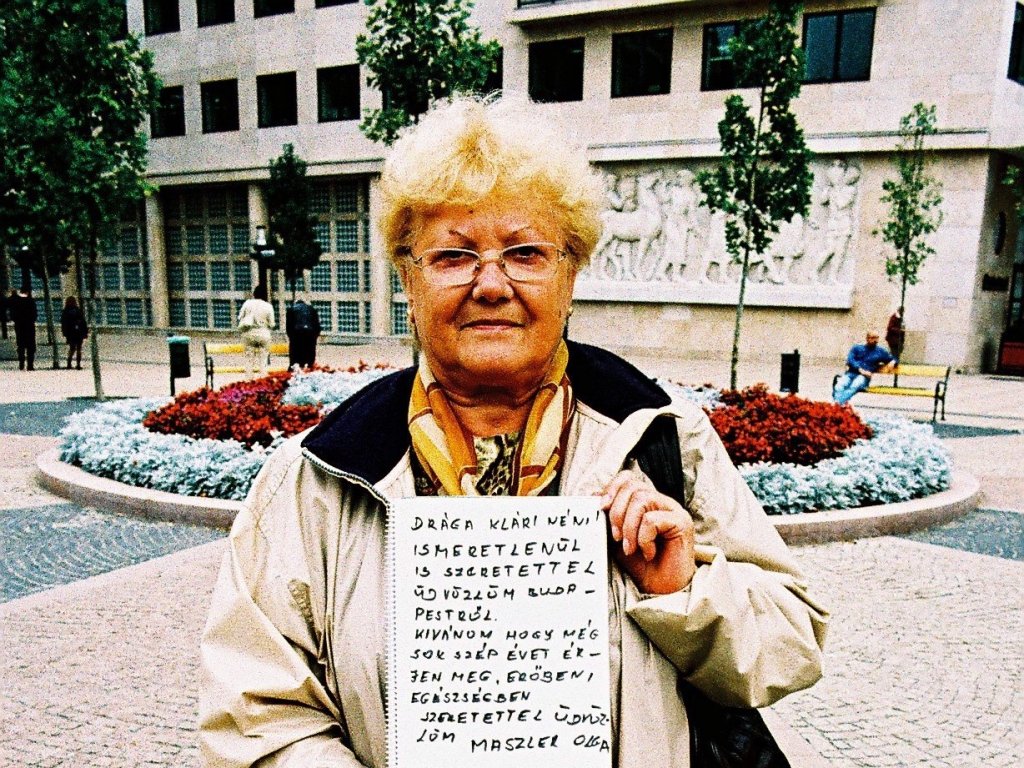 DRÁGA KLÁRI NÉNI!
ISMERETLENÜL
IS SZERETETTEL
ÜDVÖZLÖM BUDA-
PESTRŐL.
KIVÁNOM HOGY MÉG
SOK SZÉP ÉVET ÉR-
JEN MEG, ERŐBEN,
EGÉSZSÉGBEN
SZERETETTEL ÜDVÖZ-
LÖM MASZLER OLGA